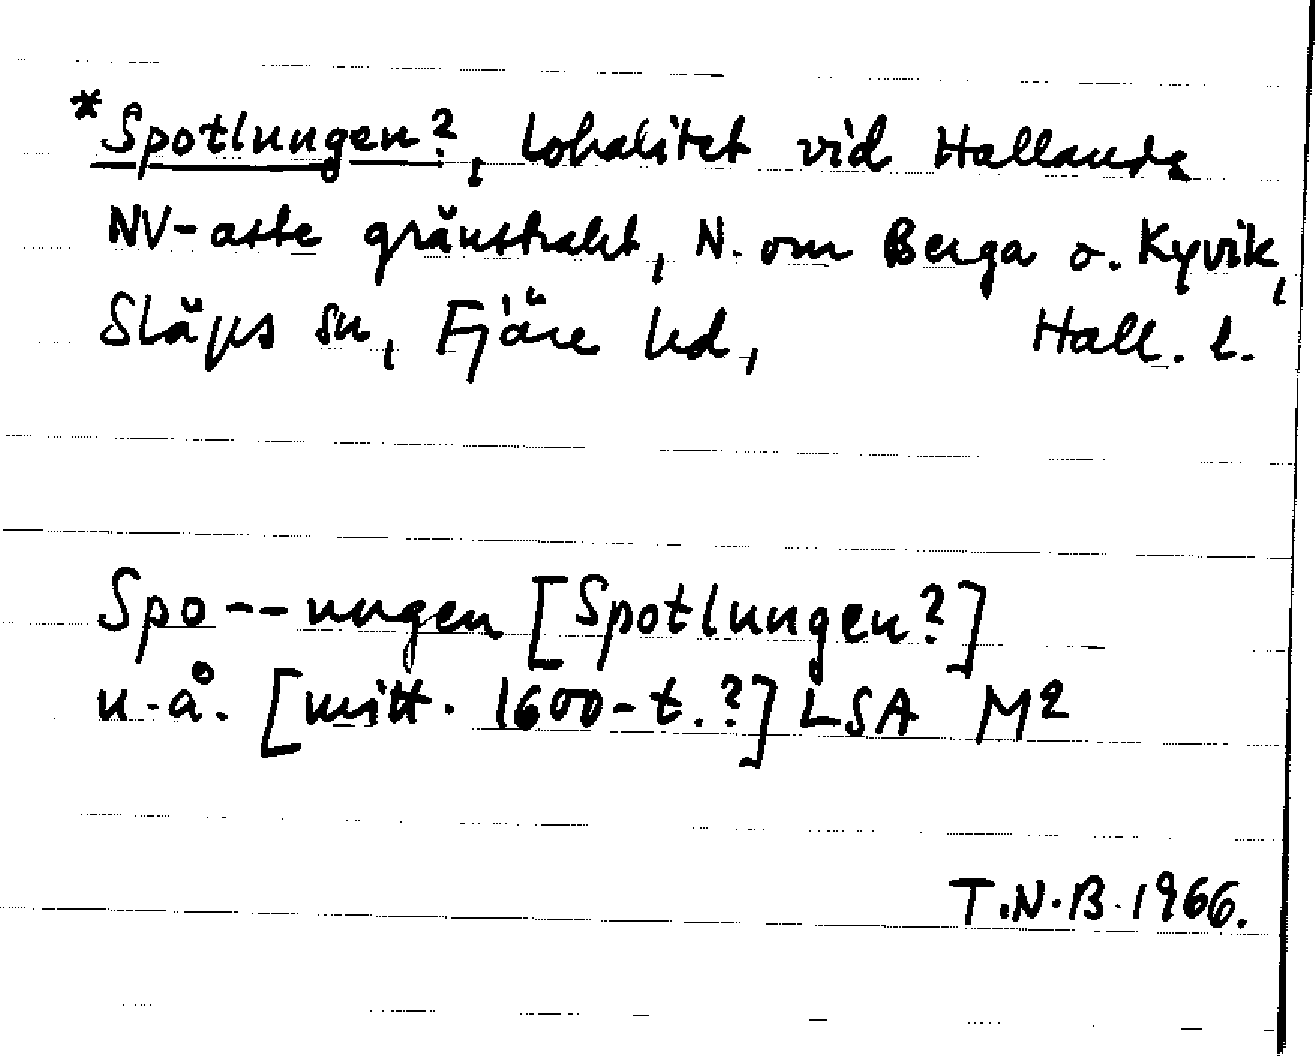 *Spotlungen?, lokalitet vid Hallands
NV-aste gränstrakt, N. om Berga o. Kyvik,
Släps sn, Fjäre hd, Hall. l.
Spo--nngen [Spotlungen?]
u.å. [mitt. 1600-t.?] LSA M2
T.N.B. 1966.